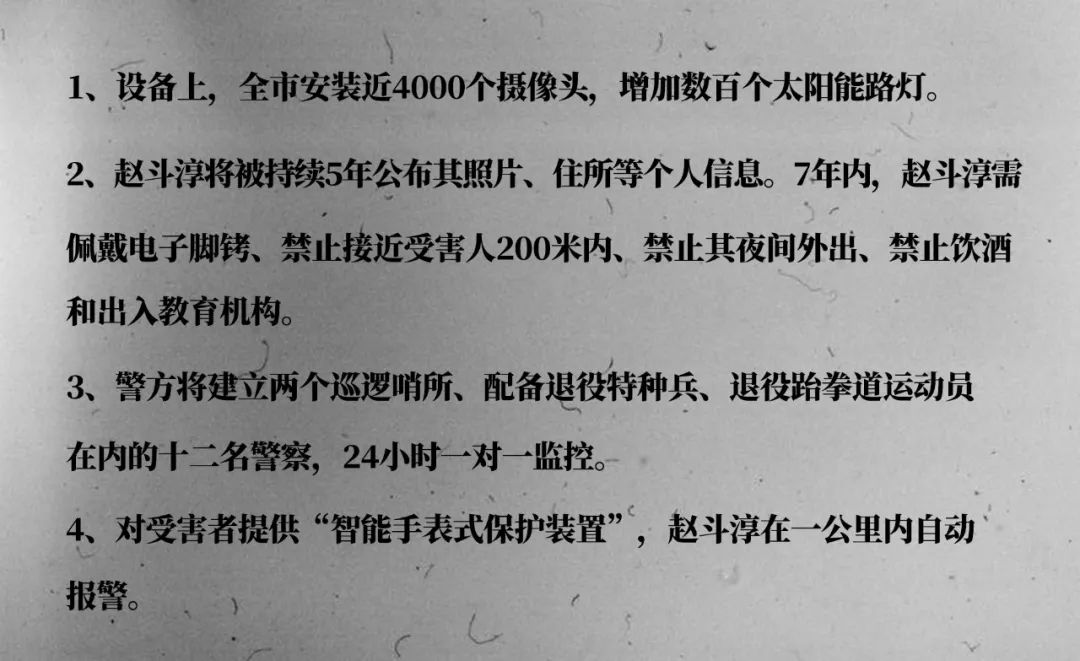 1、设备上，全市安装近4000个摄像头，增加数百个太阳能路灯。
2、赵斗淳将被持续5年公布其照片、住所等个人信息。7年内，赵斗淳需
佩戴电子脚铐、禁止接近受害人200米内、禁止其夜间外出、禁止饮酒
和出入教育机构。
3、警方将建立两个巡逻哨所、配备退役特种兵、退役跆拳道运动员
在内的十二名警察，24小时一对一监控。
4、对受害者提供“智能手表式保护装置”，赵斗淳在一公里内自动
报警。